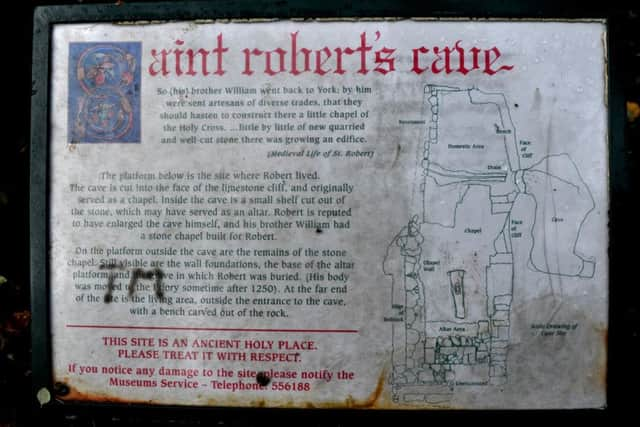 Saint robert's cave
So (his) brother William went back to York; by him
were sent artesans of diverse trades, that they
should hasten to construct there a little chapel of
the Holy Cross. ...little by little of new quarried
and well-cut stone there was growing an edifice.
(Medieval Life of St. Robert)
The platform below is the site where Robert lived.
The cave is cut into the face of the limestone cliff, and originally
served as a chapel. Inside the cave is a small shelf cut out of
the stone, which may have served as an altar. Robert is reputed
to have enlarged the cave himself, and his brother William had
a stone chapel built for Robert.
On the platform outside the cave are the remains of the stone
chapel. Still visible are the wall foundations, the base of the altar
platform and ve in which Robert was buried. (His body
was moved to the Priory sometime after 1250). At the far end
of the site is the living area, outside the entrance to the cave,
with a bench carved out of the rock.
TM
THIS SITE IS AN ANCIENT HOLY PLACE.
PLEASE TREAT IT WITH RESPECT.
If you notice any damage to the site please notify the
Museums Service - Telephone 556188
Revetment
Bench
Domestic Area
Face
of
Cliff
Drain
Cave
Chapel
Face
of
Cliff
Chapel
Wall
Edge
of
Bedrock
Altar Area
Scale Drawing of
Cave Site